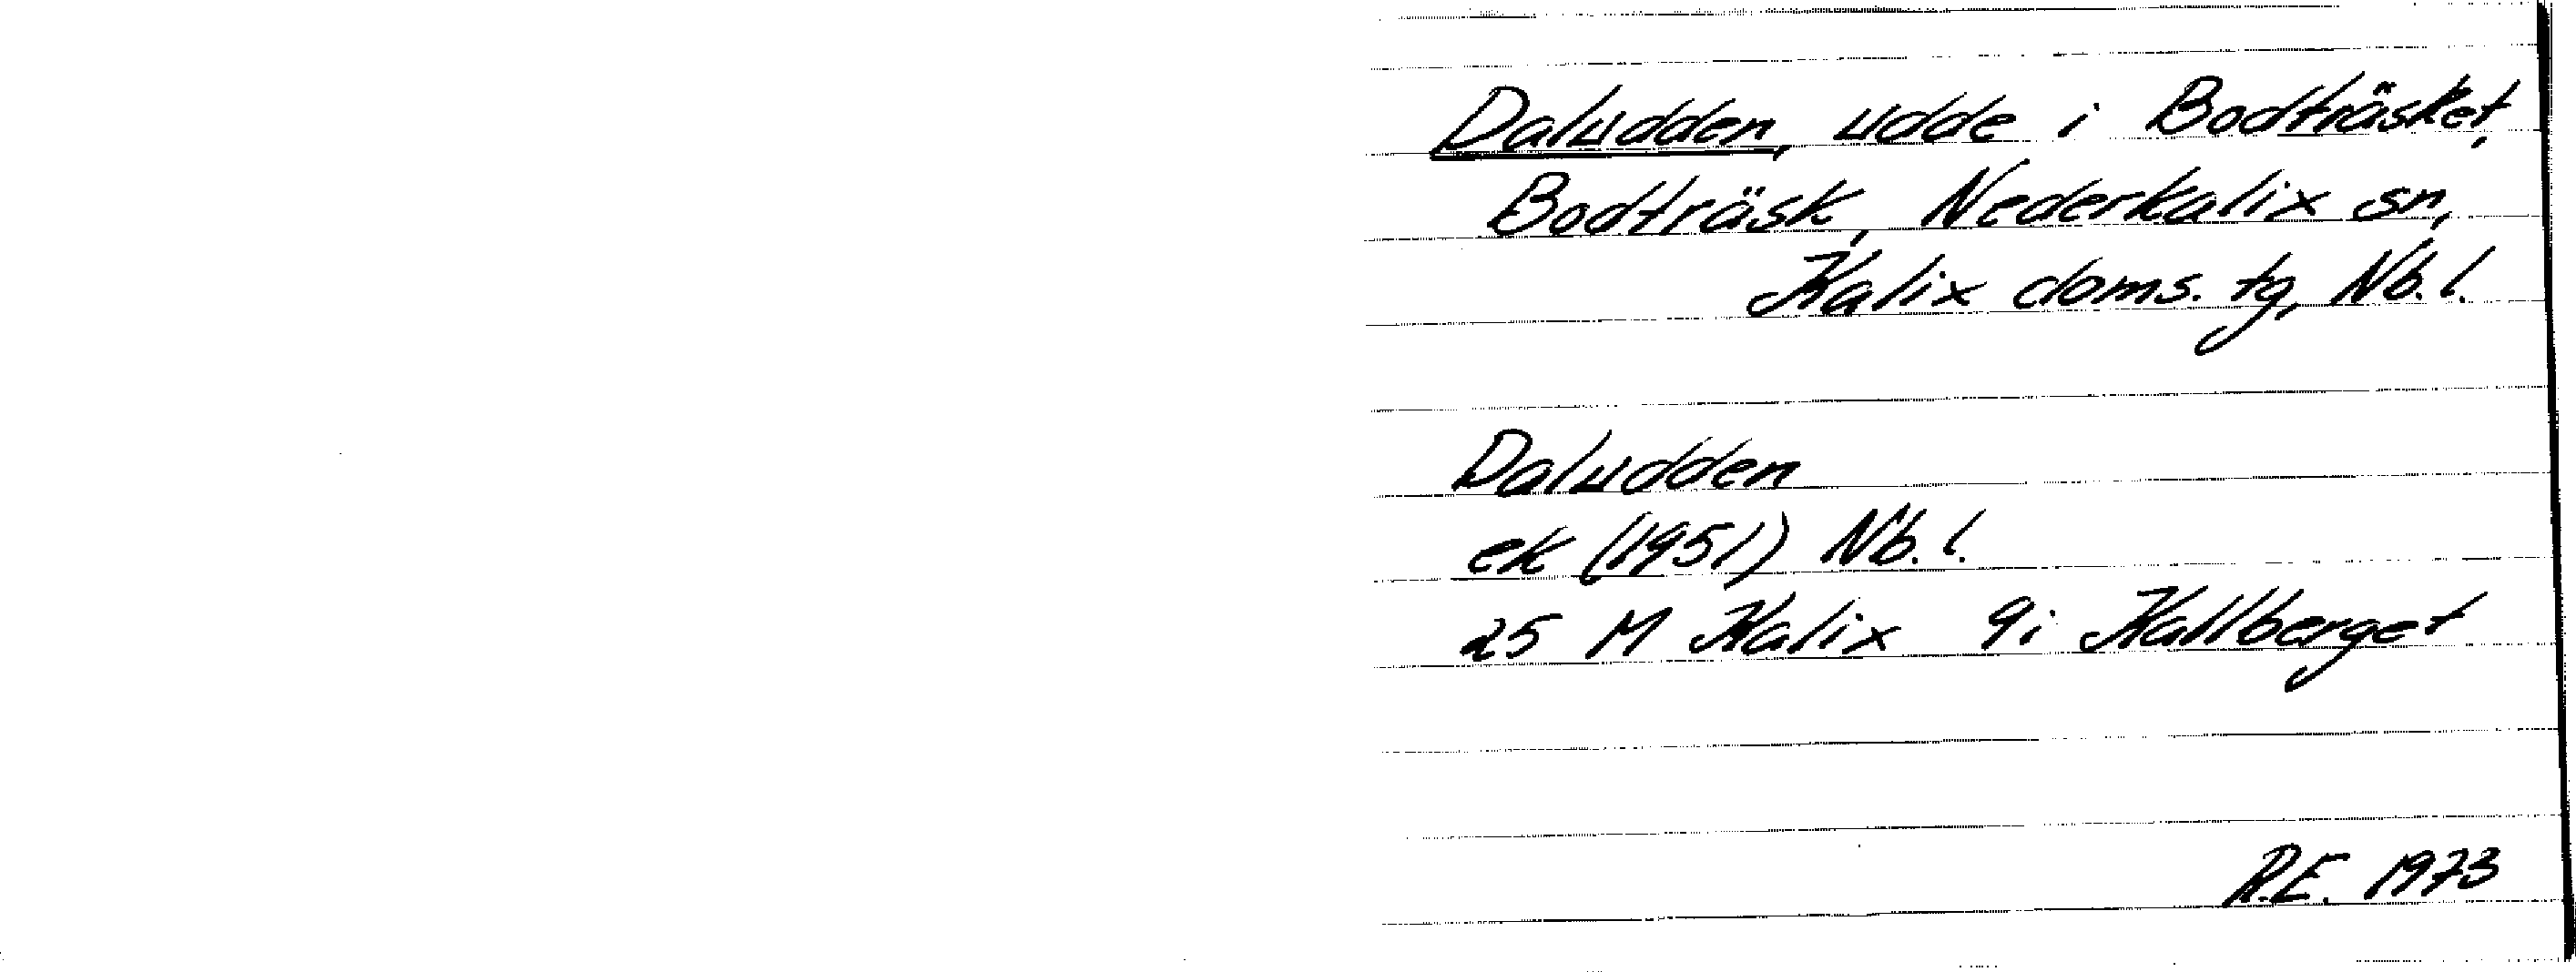 Daludden, udde i Bodträsket,
Bodträsk, Nederkalix sn,
Kalix doms. tg, Nb. l.
Daludden
ek (1951) Nb. l.
25 M Kalix 9i Kallberget
R.E. 1973